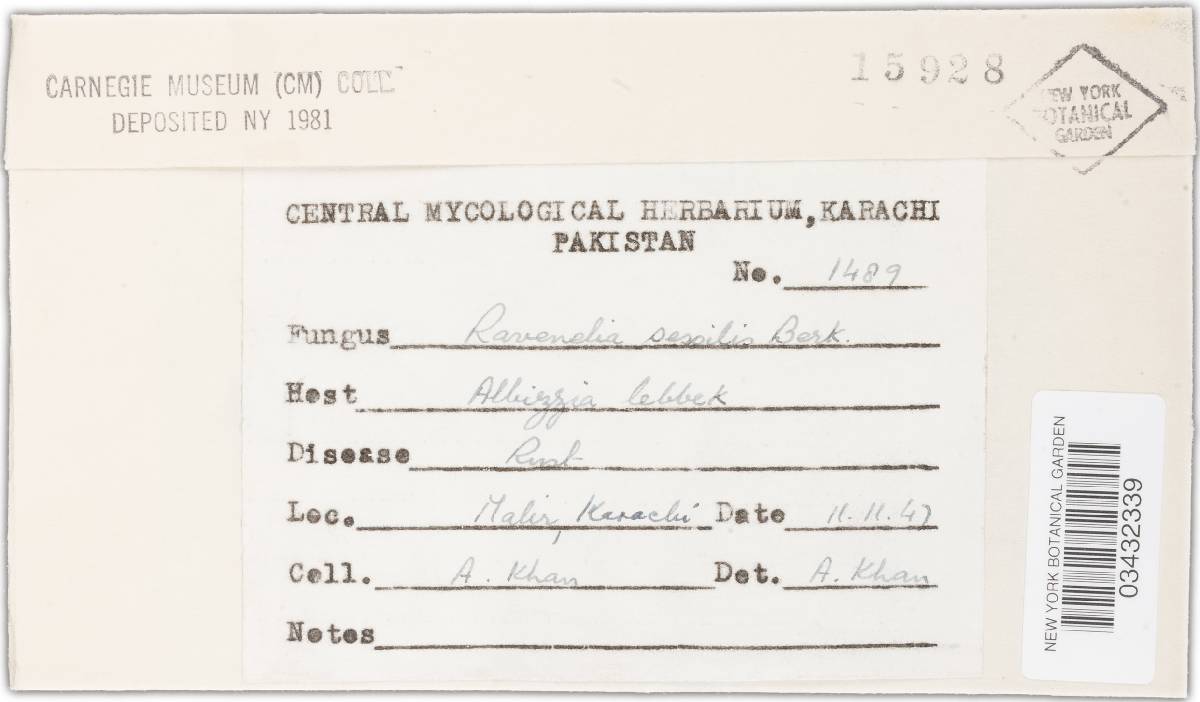 CARNEGIE MUSEUM (CM) COLL
DEPOSITED NY 1981
15928
NEW YORK
BOTANICAL
GARDEN
CENTRAL MYCOLOGICAL HERBARIUM, KARACHI
PAKISTAN
No. 1489
Fungus Ravenelia sessilis Berk.
Host Albizzia lebbek
Disease Rust
Loc. Malir, Karachi Date 11.11.47
Coll. A. Khan Det. A. Khan
Notes
NEW YORK BOTANICAL GARDEN
03432339